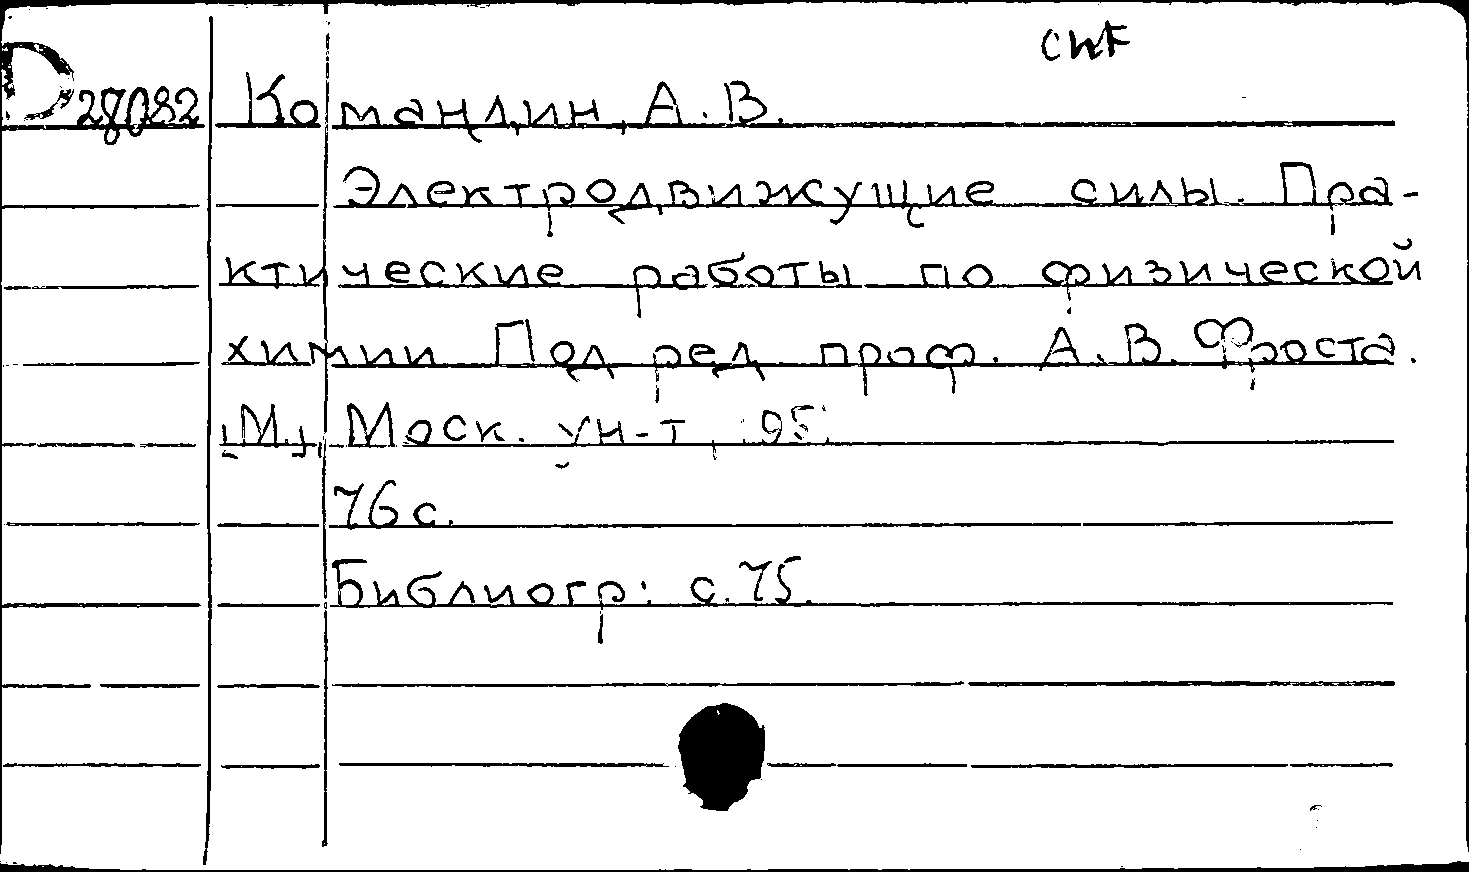 D 28082 Командин, А. В.
Электродвижущие силы. Пра-
ктические работы по физической
химии Под ред проф. А. В. Фроста.
[М.], Моск. ун-т,
76 с.
Библиогр: с. 75.